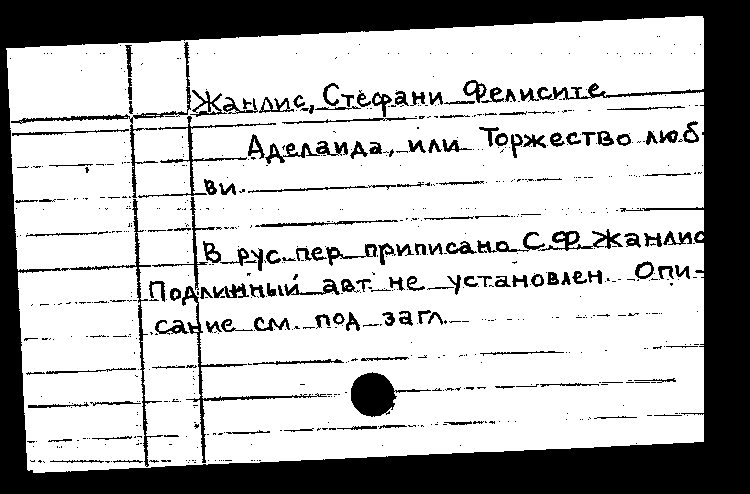 Жанлис, Стефани Фелисите
Аделаида, или Торжество люб-
ви.
В рус. пер. приписано С.Ф. Жанлис
Подлинный авт. не установлен. Опи-
сание см. под загл.